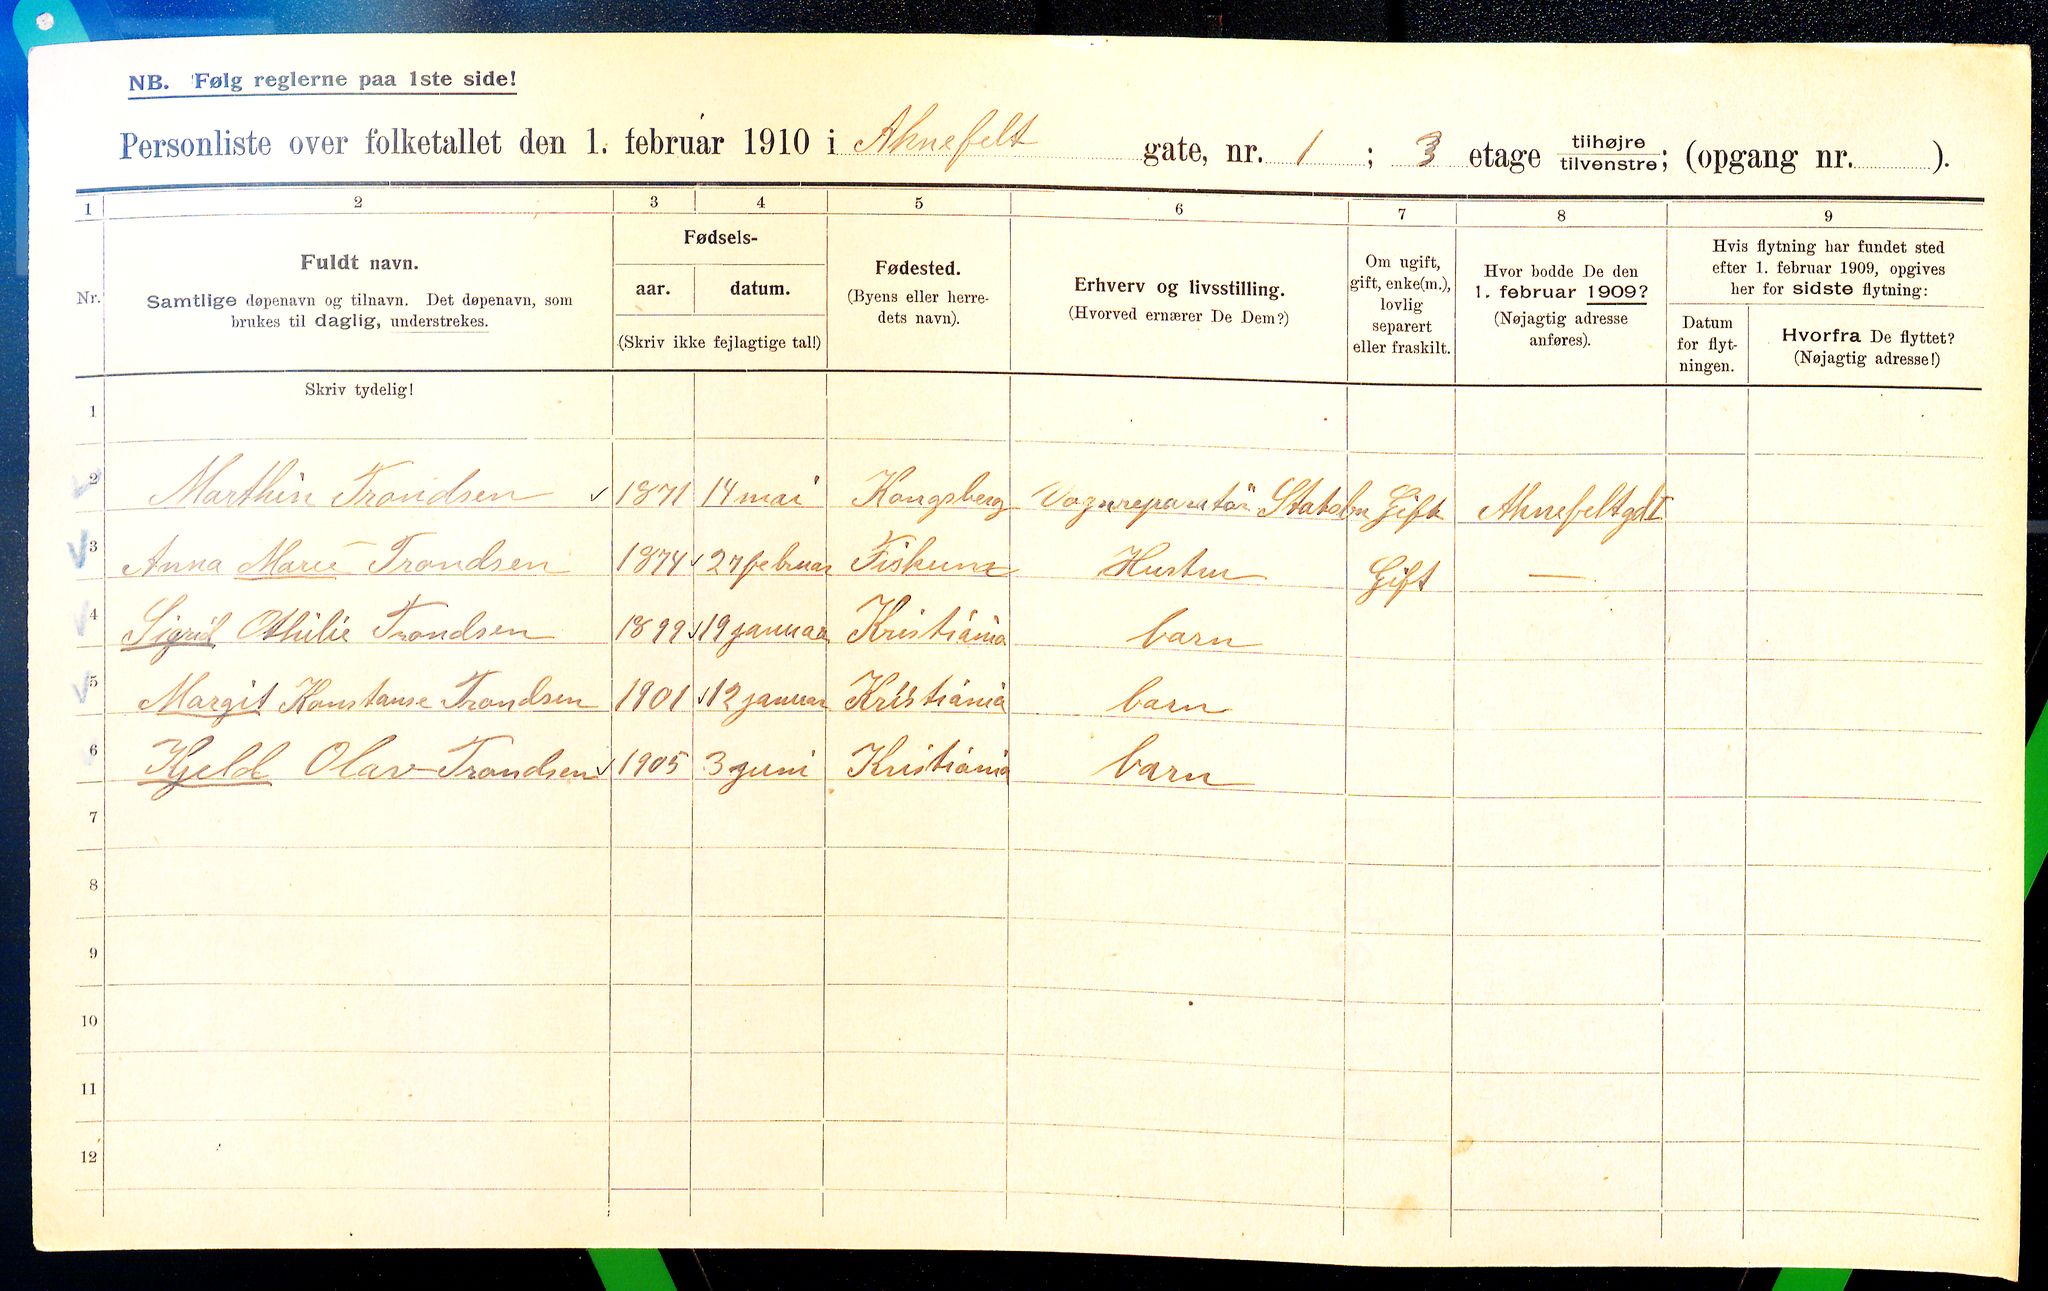 NB. Følg reglerne paa 1ste side!
Personliste over folketallet den 1. februar 1910 i Ahnefelt gate, nr. 1 ; 3 etage tilhøjre/tilvenstre; (opgang nr. ).
1 2 3 4 5 6 7 8 9
Nr.
Fuldt navn.
Samtlige døpenavn og tilnavn. Det døpenavn, som
brukes til daglig, understrekes.
Fødsels-
aar. datum.
(Skriv ikke fejlagtige tal!)
Fødested.
(Byens eller herre-
dets navn).
Erhverv og livsstilling.
(Hvorved ernærer De Dem?)
Om ugift,
gift, enke(m.),
lovlig
separert
eller fraskilt.
Hvor bodde De den
1. februar 1909?
(Nøjagtig adresse
anføres).
Hvis flytning har fundet sted
efter 1. februar 1909, opgives
her for sidste flytning:
Datum
for flyt-
ningen.
Hvorfra De flyttet?
(Nøjagtig adresse!)
Skriv tydelig!
1
2 Marthin Trondsen 1871 14 mai Kongsberg Vognreparatör Gift Ahnefeltgt 1
3 Anna Marie Trondsen 1874 27 februar Fiskum Hustru Gift —
4 Sigrid Othilie Trondsen 1899 19 januar Kristiania barn
5 Margit Konstanse Trondsen 1901 12 januar Kristiania barn
6 Kjeld Olav Trondsen 1905 3 juni Kristiania barn
7
8
9
10
11
12